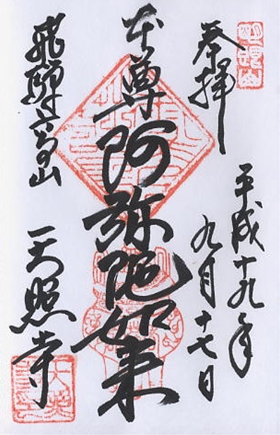 奉拝
平成十九年
九月十七日
本尊阿弥陀如来
飛騨高山
天照寺